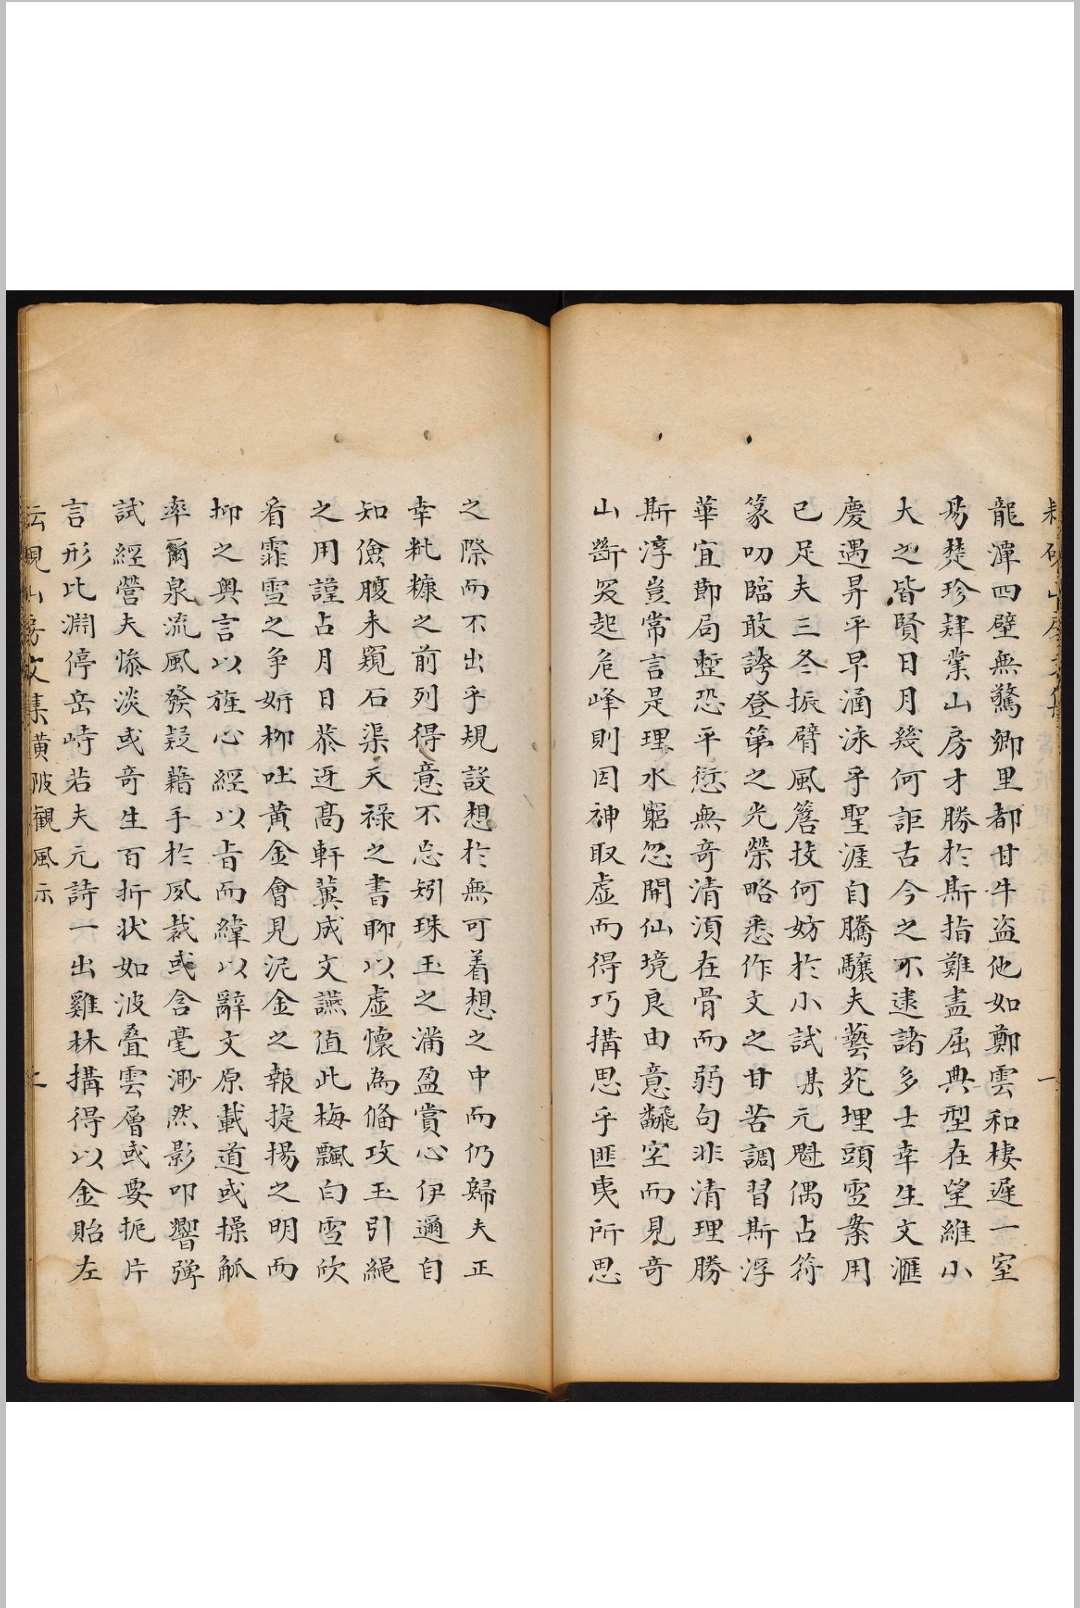 龍潭四壁無驚鄉里都甘牛盜他如鄭雲和棲遲一室
易楚珍肄業山房才勝於斯指難盡屈典型在望維小
大之皆賢日月幾何詎古今之不逮諸多士幸生文滙
慶遇昇平早涵泳乎聖涯自騰驤夫藝苑埋頭雪案用
已足夫三冬振臂風簷技何妨於小試某元魁偶占符
篆叨臨敢誇登第之光榮略悉作文之甘苦調習斯浮
華宜節局蹔恐平愆無奇清湏在骨而弱句非清理勝
斯淳豈常言是理水窮忽開仙境良由意飜空而見奇
山斷㕛起危峰則因神取虛而得巧搆思乎匪夷所思
之際而不出乎規設想於無可着想之中而仍歸夫正
幸粃糠之前列得意不忘矧珠玉之滿盈賞心伊邇自
知儉腹未窺石渠天祿之書聊以虛懷為俻攻玉引繩
之用謹占月日恭迓高軒冀成文讌值此梅飄白雪欣
看霏雪之爭妍柳吐黃金會見泥金之報捷揚之明而
抑之奧言以旌心經以㫖而緯以辭文原載道或操觚
率爾泉流風發疑藉手於夙裁或含毫渺然影叩響彈
試經營夫慘淡或奇生百折狀如波疊雲層或要扼片
言形比淵停岳峙若夫元詩一出雞林搆得以金貽左
硯山房文集黃陂觀風示